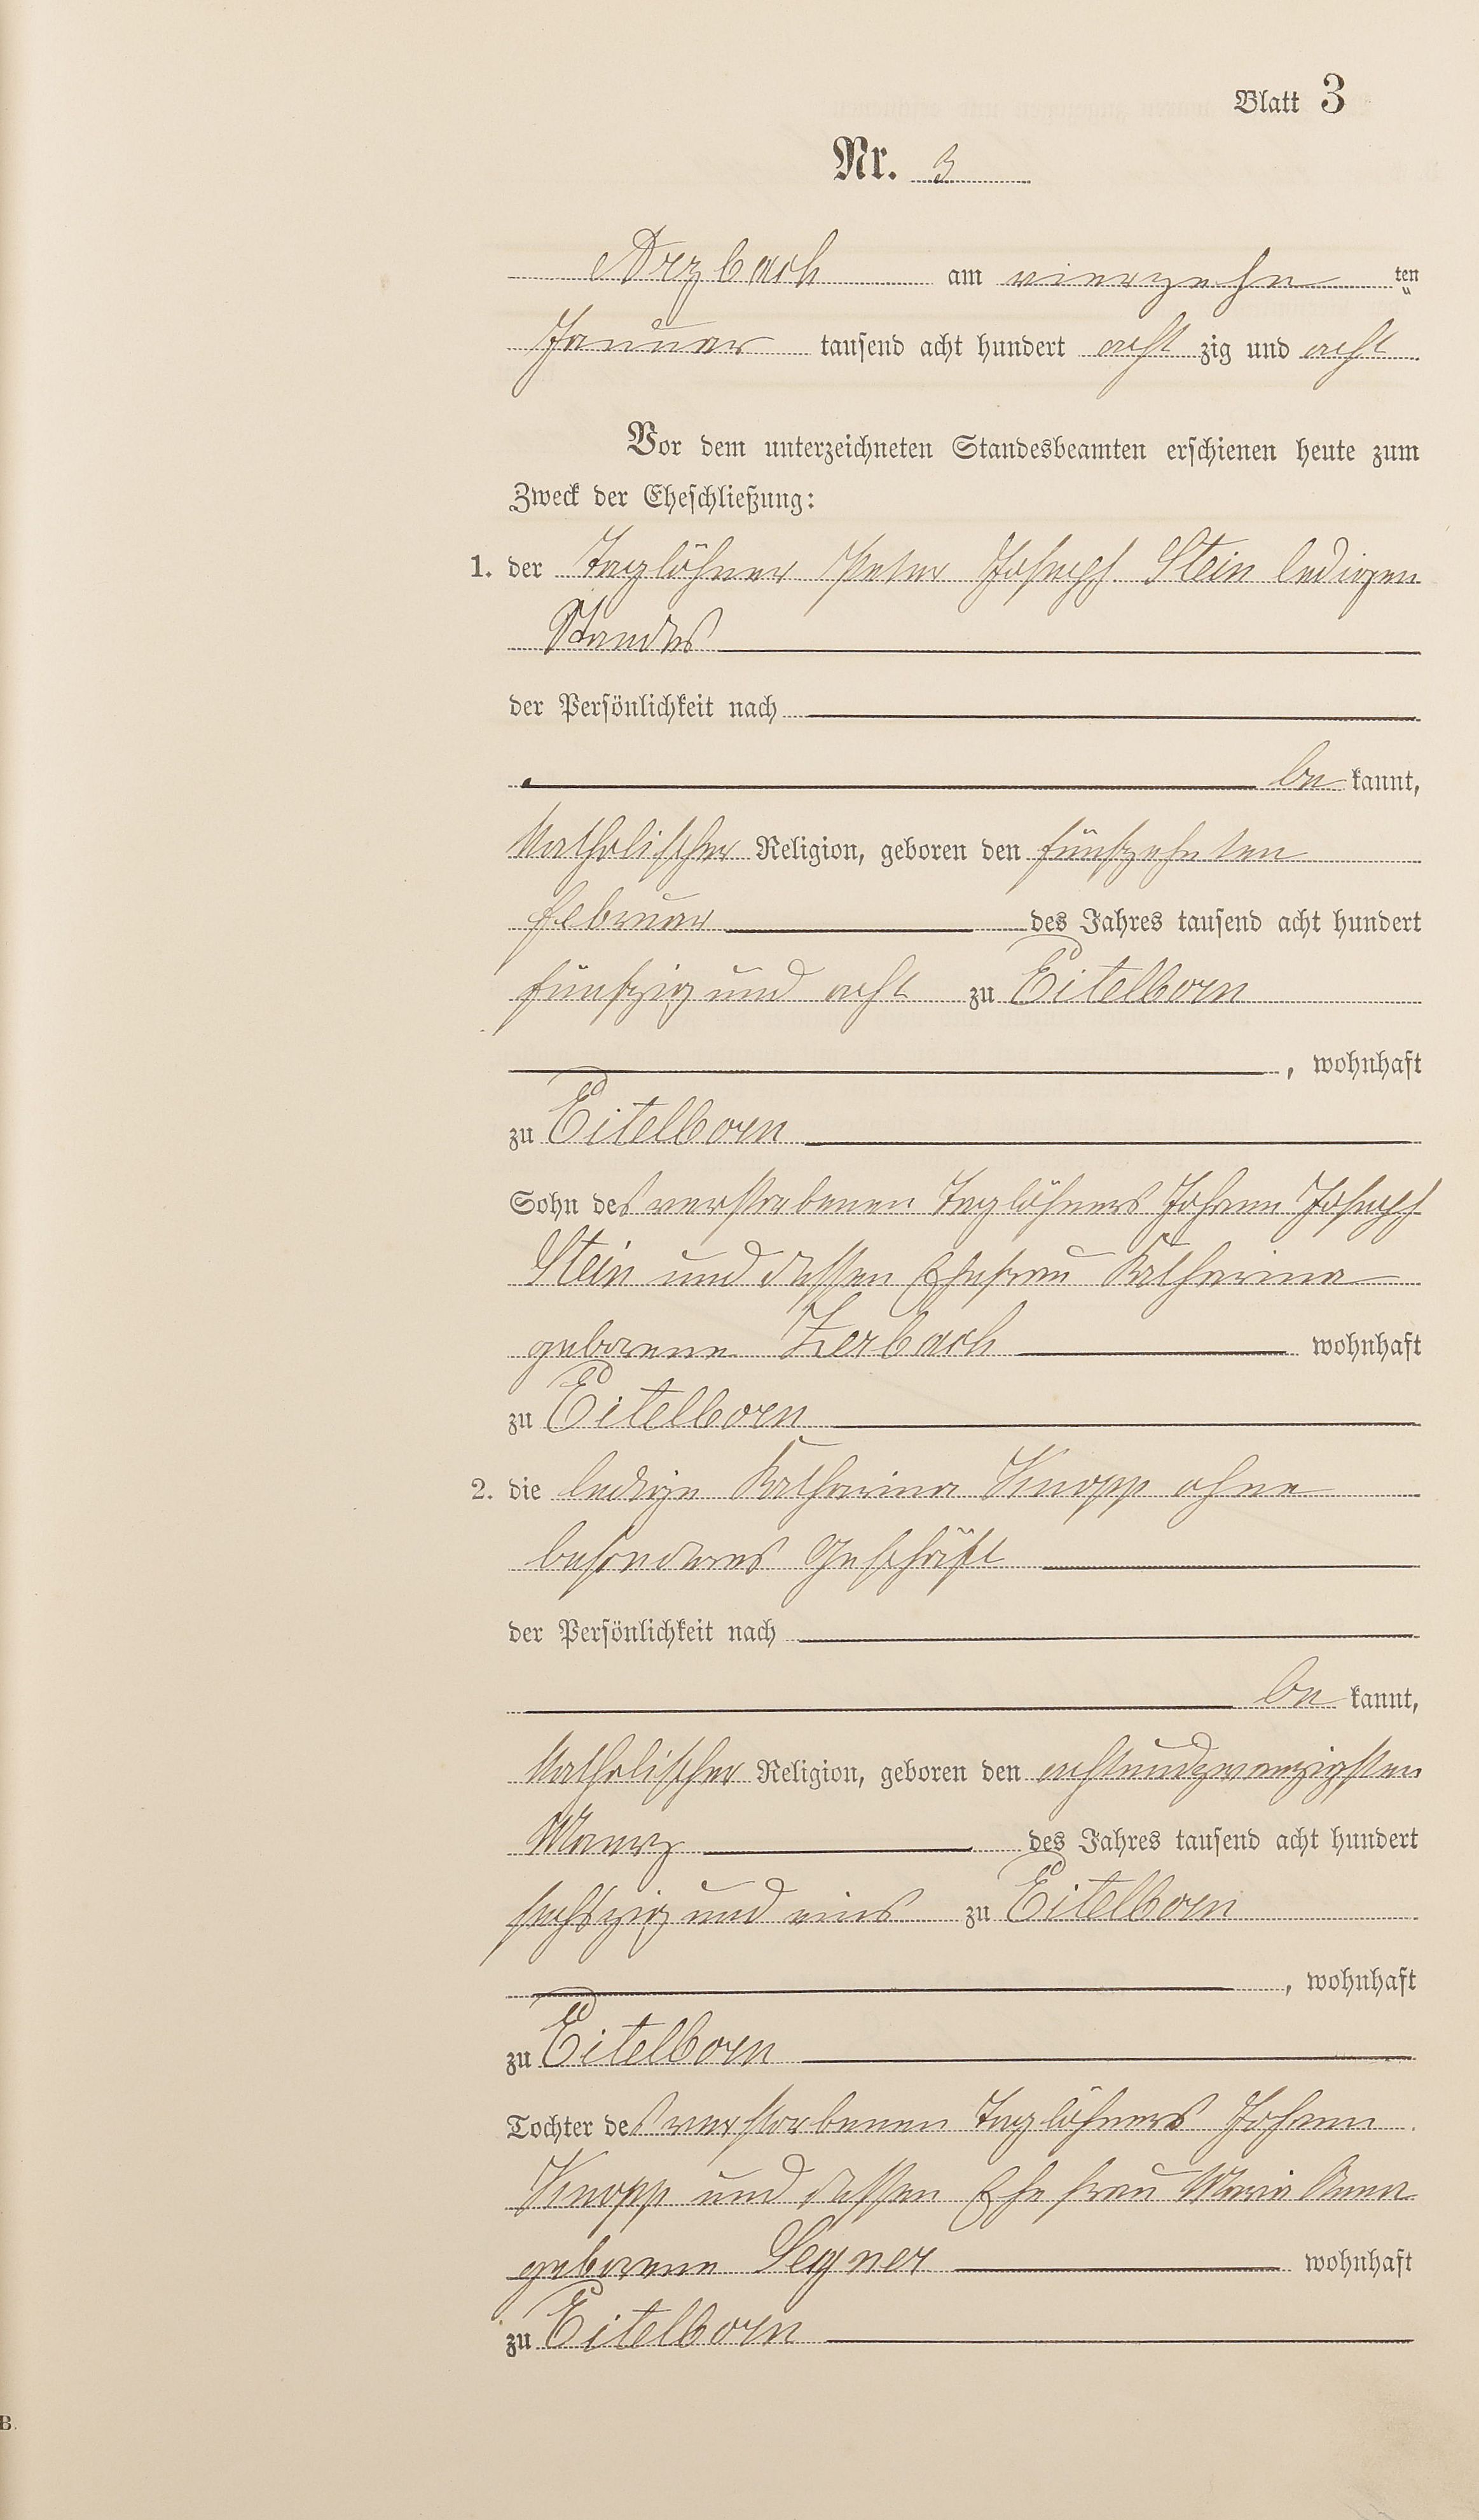 Blatt 3
Nr. 3
Arzbach am vierzehn ten
Januar tausend acht hundert acht zig und acht
Vor dem unterzeichneten Standesbeamten erschienen heute zum
Zweck der Eheschließung:
1. der Taglöhner Peter Joseph Stein ledigen
Standes
der Persönlichkeit nach
be kannt,
katholischer Religion, geboren den fünfzehnten
Februar des Jahres tausend acht hundert
fünfzig und acht zu Eitelborn
, wohnhaft
zu Eitelborn
Sohn des verstorbenen Taglöhners Johann Joseph
Stein und dessen Ehefrau Katharina
geborene Zerbach wohnhaft
zu Eitelborn
2. die ledige Katharina Knopp ohne
besonderes Geschäft
der Persönlichkeit nach
be kannt,
katholischer Religion, geboren den achtundzwanzigsten
Maerz des Jahres tausend acht hundert
sechszig und eins zu Eitelborn
, wohnhaft
zu Eitelborn
Tochter des verstorbenen Taglöhners Johann
Knopp und dessen Ehefrau Maria Anna
geborene Legner wohnhaft
zu Eitelborn
B.